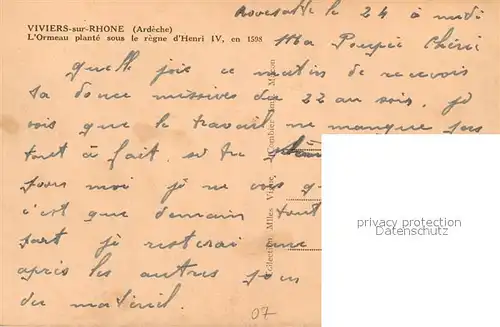 VIVIERS-sur-RHONE (Ardèche)
L'Ormeau planté sous le règne d'Henri IV, en 1598
le 24 à midi
Ma Poupée Chérie
Quelle joie ce matin de recevoir
ta douce missives du 22 au soir. je
vois que le travail ne manque pas
tout à fait.
pour moi je ne vois
c'est que demain tout
part je resterai une
après les autres
du matériel.
Collection Mlles Vigne, Combier Imp. Macon
07
copyright delcampe.net